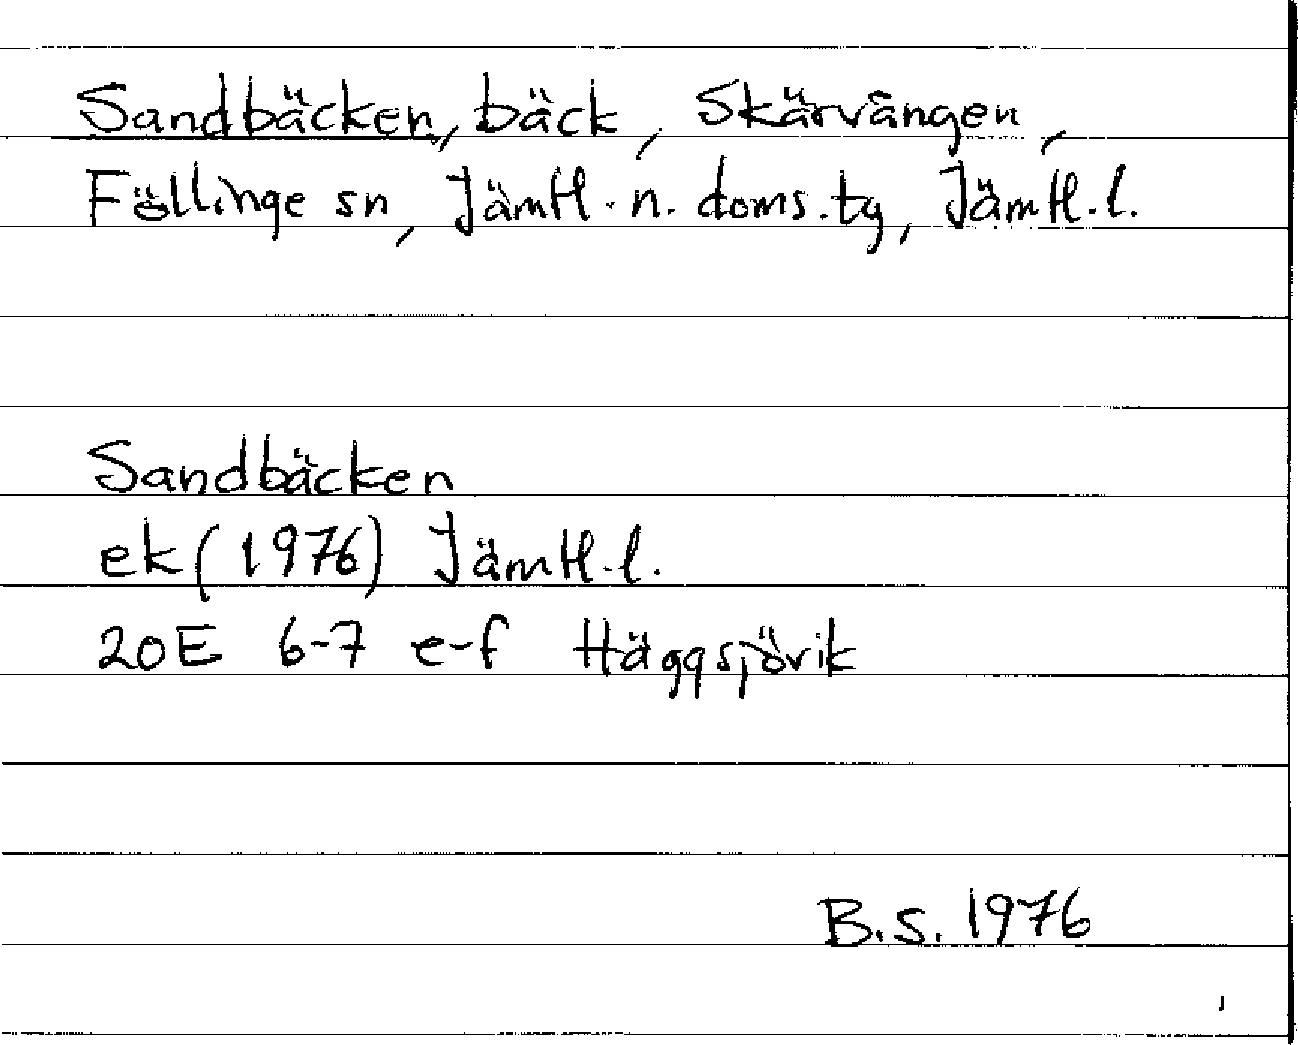 Sandbäcken, bäck, Skärvången,
Föllinge sn, Jämtl. n. doms. ty, Jämtl. l.
Sandbäcken
ek (1976) Jämtl. l.
20E 6-7 e-f Häggsjövik
B.S. 1976